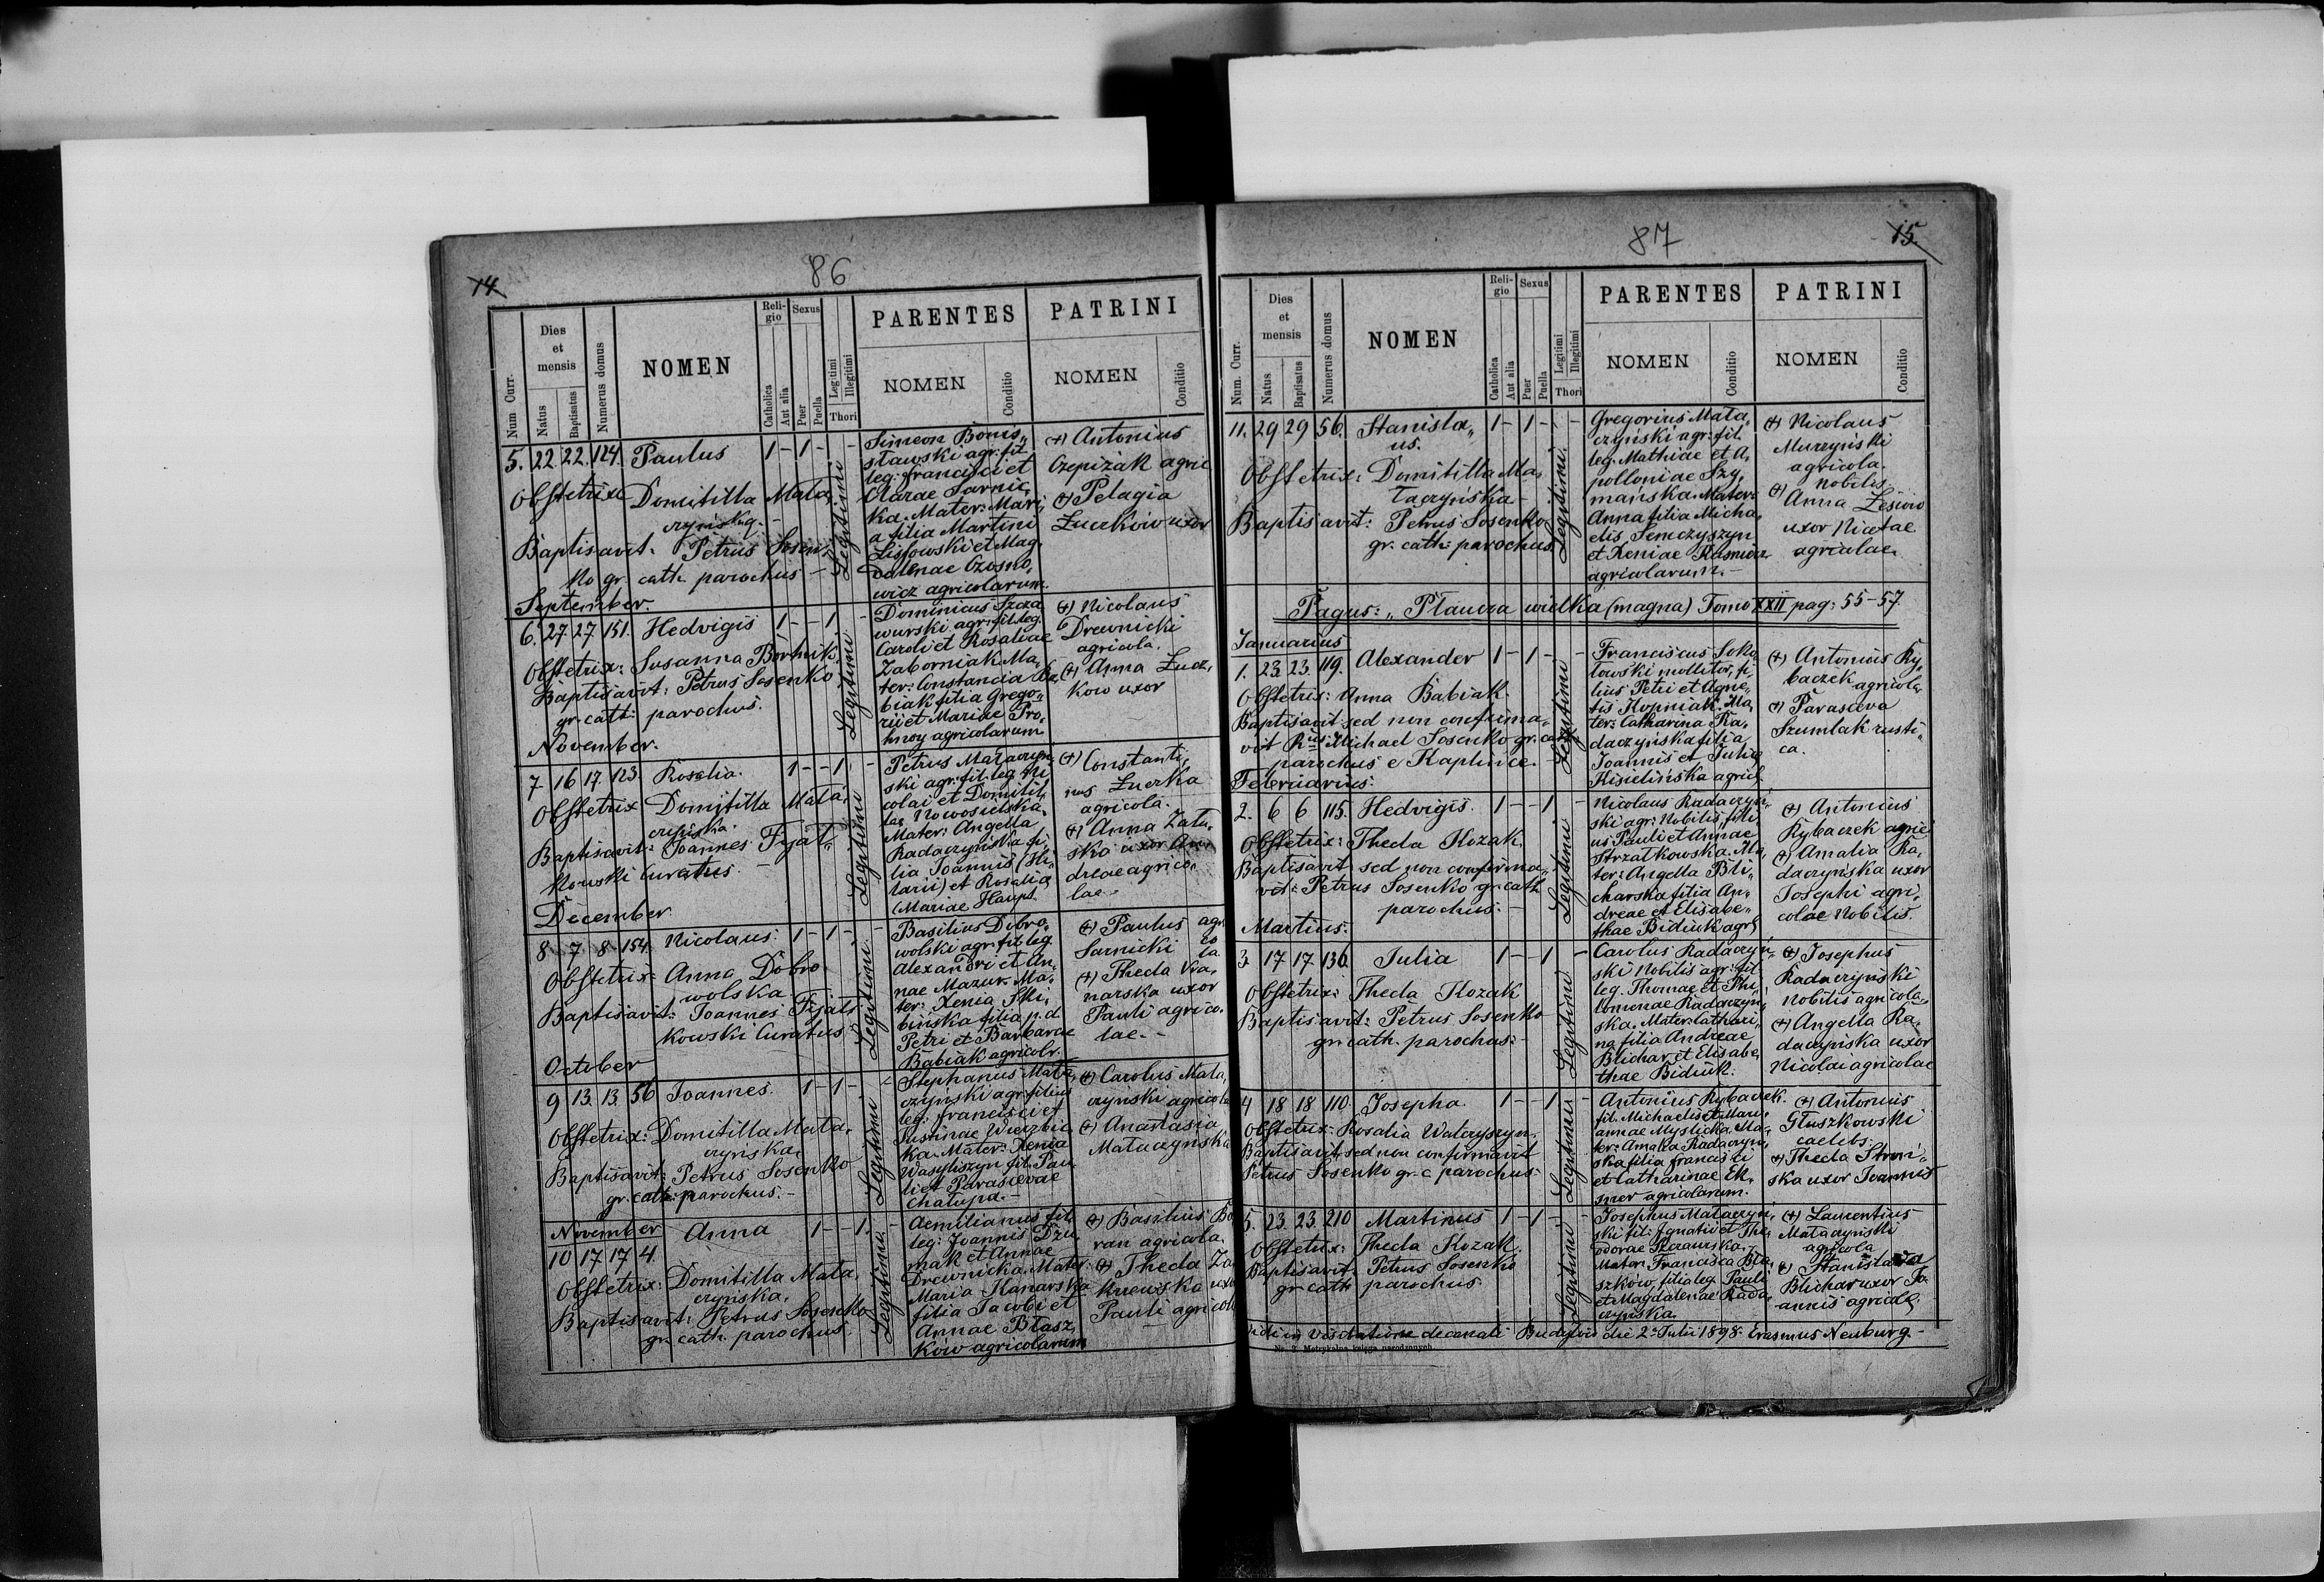 14
86
Num Curr.
Dies et mensis
Natus
Baptisatus
Numerus domus
NOMEN
Religio
Catholica
Aut alia
Sexus
Puer
Puella
Legitimi
Illegitimi
Thori
PARENTES
NOMEN
Conditio
PATRINI
NOMEN
Conditio
5. 22. 22. 124. Paulus 1 - 1 - -
Obstetrix Domitilla Mata„
czyńska. -
Baptisavit: Petrus Sosen„
ko gr. cath. parochus -
Legitimi
Simeon Bonis„
sławski agr. fil.
leg. Francisci et
Clarae Sarnic„
ka. Mater: Mari„
a filia Martini
Lissowski et Mag„
dalenae Czosno„
wicz agricolarum.
(+) Antonius
Czepizak agric
(+) Pelagia
Łuczkow uxor
September.
6. 27. 27. 151. Hedvigis 1 - - 1 -
Obstetrix: Susanna Bortnik.
Baptisavit: Petrus Sosenko
gr. cath: parochus.
Legitimi
Dominicus Szcza
wurski agr. fil. leg.
Caroli et Rosaliae
Zaborniak Ma„
ter: Constancia Ba„
biak filia Grego„
rii et Mariae Pro„
hnoy agricolarum
(+) Nicolaus
Drewnicki
agricola.
(+) Anna Łucz„
kow uxor
November.
7 16 17 123. Rosalia. 1 - - 1 -
Obstetrix Domitilla Mata„
czyńska.
Baptisavit: Joannes Fijał„
kowski Curatus. -
Legitimi
Petrus Mataczyń„
ski agr. fil. leg. Ni
colai et Domitil„
lae Nowosielska.
Mater: Angella
Radaczyńska fi„
lia Joannis (Hi„
larii) et Rosalia
(Mariae Haups.
(+) Constanti„
nus Łuczka
agricola.
(+) Anna Zału„
ska uxor An„
dreae agrico„
lae -
December
8 7 8 154. Nicolaus. 1 - 1 - -
Obstetrix: Anna Dobro
wolska
Baptisavit: Joannes Fijał„
kowski Curatus
Legitimi
Basilius Dobro„
wolski agr. fil. leg.
Alexandri et An„
nae Mazur. Ma„
ter: Xenia Ski„
bińska filia p.d.
Petri et Barbarae
Babiak agricolr.
(+) Paulus agri
Sarnicki co
la
(+) Theda Ka„
narska uxor
Pauli agrico„
lae. -
October
9 13. 13. 56 Joannes. 1 - 1 -
Obstetrix: Domitilla Mata„
czyńska
Baptisavit: Petrus Sosenko
gr. cath: parochus. -
Legitimi
Stephanus Mata„
czyński agr. filius
leg. Francisci et
Justinae Wierzbic„
ka. Mater: Xenia
Wasyliszyn fil. Pau
li et Parascevae
Chałupa. -
(+) Carolus Mata„
czyński agricola
(+) Anastasia
Mataczyńska
November
10 17 17 4. Anna 1 - - 1.
Obstetrix: Domitilla Mata„
czyńska.
Baptisavit: Petrus Sosenko
gr. cath. parochus.
Legitimi.
Aemilianus fil.
leg: Joannis Dzu
mak et Annae
Drewnicka. Mater:
Maria Kanarska
filia Jacobi et
Annae Błasz„
kow agricolarum
(+) Basilius Bo
ran agricola.
(+) Theda Za
krzewska uxor
Pauli agricol
87
15.
Num. Curr.
Dies et mensis
Natus
Baptisatus
Numerus domus
NOMEN
Religio
Catholica
Aut alia
Sexus
Puer
Puella
Legitimi
Illegitimi
Thori
PARENTES
NOMEN
Conditio
PATRINI
NOMEN
Conditio
11. 29 29 56. Stanisla„
us.
Obstetrix: Domitilla Ma„
taczyńska -
Baptisavit: Petrus Sosenko
gr. cath: parochus
Legitimi.
Gregorius Mata„
czyński agr. fil.
leg. Mathiae et A„
polloniae Szy„
mańska. Mater:
Anna filia Micha„
elis Semczyszyn
et Xeniae
agricolarum. -
(+) Nicolaus
Murzyński
agricola.
nobilis
(+) Anna Lesiow
uxor Nicetae
agricolae.
Pagus: „Płaucza wielka (magna) Tomo XXII pag: 55-57.
Januarius
1. 23. 23. 119. Alexander 1 - 1 - -
Obstetrix: Anna Babiak.
Baptisavit sed non confirma„
vit Rus Michael Sosenko gr. ca
parochus e Kaplince. -
Legitimi
Franciscus Soko
łowski mollitor, fi„
lius Petri et Agne„
tis Kopniak. Ma„
ter: Catharina Ra„
daczyńska filia
Joannis et Julia
Kisielińska agricl.
(+) Antonius Ry„
baczek agricola
(+) Parasceva
Szumlak rusti„
ca.
Februarius.
2. 6 6 115. Hedvigis. 1 - - 1 -
Obstetrix: Theda Kozak.
Baptisavit sed non confirma„
vit: Petrus Sosenko gr. cath
parochus. -
Legitimi
Nicolaus Radaczyń„
ski agr. Nobilis, fili
us Pauli et Annae
Strzałkowska. Ma„
ter: Angella Bli„
charska filia An„
dreae et Elisabe„
thae Bidiuk agr.
(+) Antonius
Rybaczek agric
(+) Amalia Ra„
daczyńska uxor
Josephi agri„
colae Nobilis.
Martius.
3. 17 17 136. Julia 1 - - 1 -
Obstetrix: Theda Kozak
Baptisavit: Petrus Sosenko
gr. cath. parochus: -
Legitimi
Carolus Radaczyń„
ski Nobilis agr. fil
leg. Thomae et Phi„
lomenae Radaczyń„
ska. Mater: Cathari„
na filia Andreae
Blichar et Elisabe„
thae Bidiuk.
(+) Josephus
Radaczyński
nobilis agricola
(+) Angella Ra„
daczyńska uxor
Nicolai agricolae
4 18 18 110 Josepha. 1 - - 1 -
Obstetrix: Rosalia Watczyszyn.
Baptisavit sed non confirmavit
Petrus Sosenko gr. c. parochus -
Legitimi
Antonius Rybaczek.
fil. Michaelis et Mari„
annae Myslicka. Ma„
ter: Amalia Radaczyń„
ska filia Francisci
et Catharinae
agricolarum.
(+) Antonius
Głuszkowski
caelebs.
(+) Theda Stroń„
ska uxor Joannis
5. 23. 23. 210 Martinus 1 - 1 - -
Obstetrix: Theda Kozak.
Baptisavit Petrus Sosenko
gr. cath parochus.
Legitimi
Josephus Mataczyń„
ski fil: Ignatii et The„
odorae
Mater: Francisca Bla„
szkow, filia leg. Pauli
et Magdalenae Rada„
czyńska.
(+) Laurentius
Mataczyński
agricola
(+) Stanislava
Blichar uxor Jo„
annis agricola
Vidi in visitatione decanali Budyłow die 2. Julii 1898. Erasmus Neuburg. -
Nr. 2. Metrykalna księga narodzonych